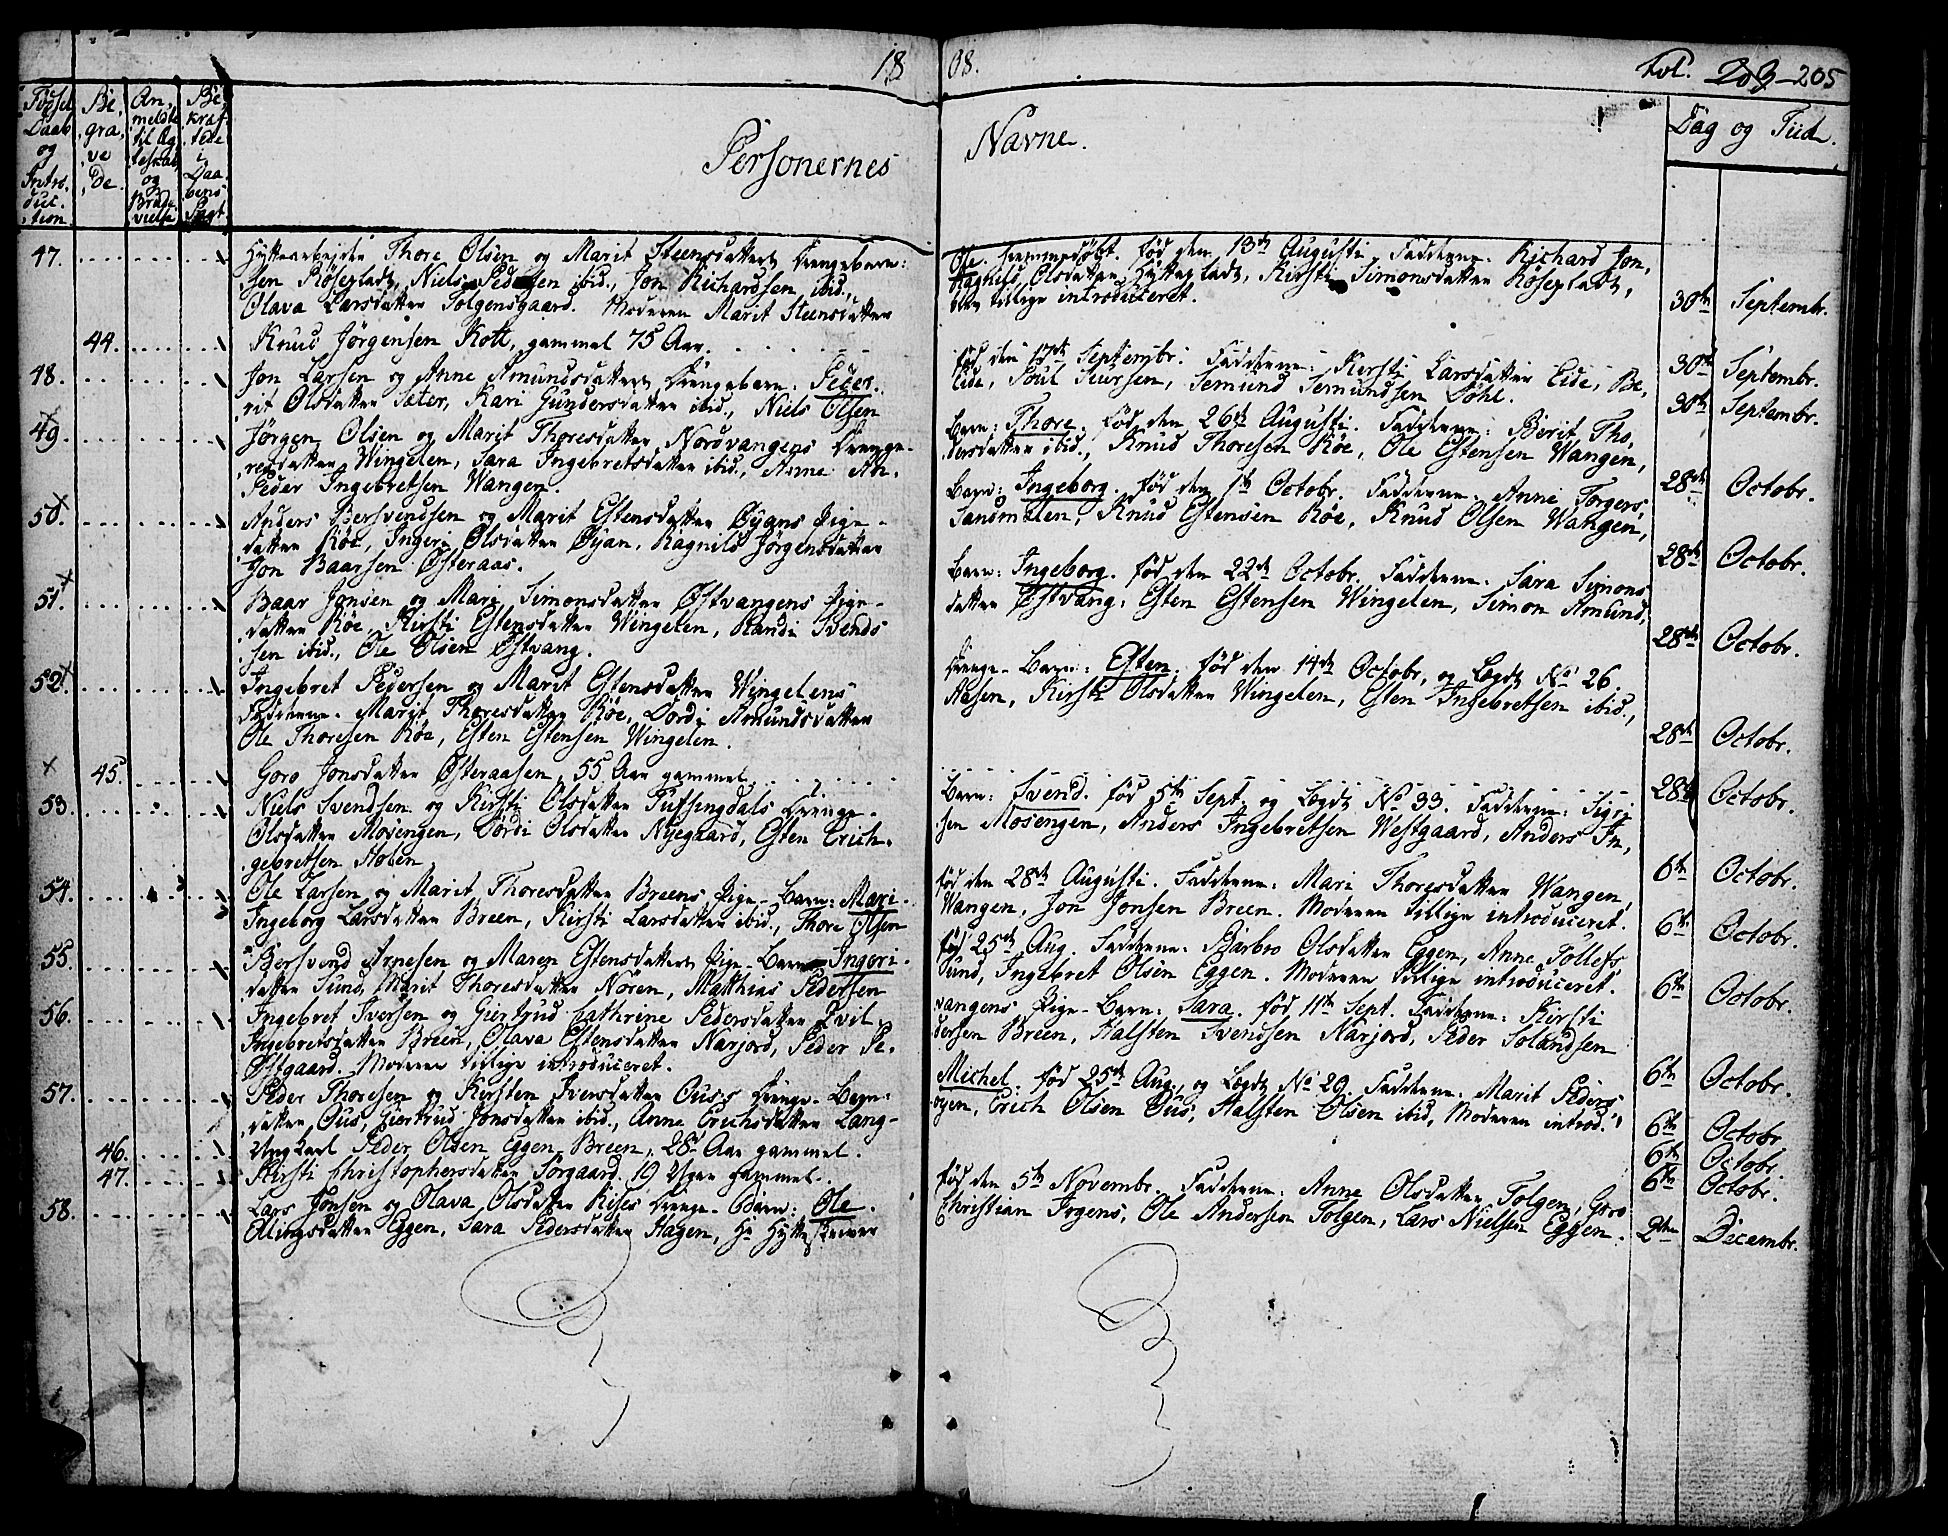 18 08. Fol. 203-205
Fødsel Daab og Introduction
Begravede
Anmeldte til Ægteskab og Brudevielse
Bekræftede i Daabens Pagt
Personernes Navne. Dag og Tiid.
47. Hyttearbejder Thore Olsen og Marit Steensdatters Drengebarn: Ole. hiemmedøbt, fød den 13de Augusti. Fadderne: Richard Jon,
sen Røseplads, Niels Pedersen ibid., Jon Richardsen ibid., Ragnild Olsdatter Hytteplads, Kirsti Simonsdatter Røseplads,
Olava Larsdatter Tolgensgaard. Moderen Marit Steensdatter blev tillige introduceret. 30te Septembr.
44. Knud Jörgensen Kott, gammel 75 Aar. 30te Septembr.
48. Jon Larsen og Anne Amundsdatters Drengebarn: Peder. fød den 17de Septembr. Fadderne: Kirsti Larsdatter Eide, Be,
rit Olsdatter Sæter, Kari Gundersdatter ibid., Niels Olsen Eide, Poul Siursen, Semund Semundsen Dohl. 30te Septembr.
49. Jörgen Olsen og Marit Thoresdatter Nordvangens Drenge- Barn: Thore. fød den 26de Augusti. Fadderne: Berit Tho,
resdatter Wingelen, Sara Ingebretsdatter ibid., Anne An, dersdatter ibid., Knud Thoresen Röe, Ole Estensen Wangen,
Peder Ingebretsen Wangen. 28de Octobr.
50. Anders Bersvendsen og Marit Estensdatter Øyans Pige- Barn: Ingeborg. fød den 1te Octobr. Fadderne: Anne Torgers,
datter Röe, Ingeri Olsdatter Øyan, Ragnild Jörgensdatter Sandmælen, Knud Estensen Röe, Knud Olsen Wangen,
Jon Baarsen Østeraas. 28de Octobr.
51. Baar Jonsen og Mari Simonsdatter Østvangens Pige- Barn: Ingeborg. fød den 22de Octobr. Fadderne: Sara Simons
datter Röe, Kirsti Estensdatter Wingelen, Randi Svends datter Østvang, Esten Estensen Wingelen, Simon Amund,
sen ibid., Ole Olsen Østvang. 28de Octobr.
52. Ingebret Pedersen og Marit Estensdatter Wingelens Drenge-Barn: Esten. fød den 14de Octobr, og Lægds No 26
Fadderne: Marit Thoresdatter Röe, Dordi Amundsdatter Aasen, Kirsti Olsdatter Wingelen, Esten Ingebretsen ibid.,
Ole Thoresen Röe, Esten Estensen Wingelen. 28de Octobr.
45. Goro Jonsdatter Østeraasen, 55 Aar gammel. 28de Octobr.
53. Niels Svendsen og Kirsti Olsdatter Tufsingdals Drenge- Barn: Svend. fød 5te Sept. og Lægds No 33. Fadderne: Sigri
Olsdatter Mosengen, Dordi Olsdatter Nyegaard, Esten Erich, sen Mosengen, Anders Ingebretsen Westgaard, Anders In,
gebretsen Holen. 6te Octobr.
54. Ole Larsen og Marit Thoresdatter Breens Pige-Barn: Mari. fød den 28de Augusti. Fadderne: Mari Thoresdatter Wangen,
Ingeborg Larsdatter Breen, Kirsti Larsdatter ibid., Thore Olsen Wangen, Jon Jonsen Breen. Moderen tillige introduceret. 6te Octobr.
55. Bersvend Arnesen og Maren Estensdatters Pige-Barn Ingeri. fød 25de Aug. Fadderne: Barbro Olsdatter Eggen, Anne Tollefs
datter Sund, Marit Thoresdatter Nören, Matthias Pedersen Sund, Ingebret Olsen Eggen. Moderen tillige introduceret. 6te Octobr.
56. Ingebret Iversen og Giertrud Cathrine Pedersdatter Qvil, vangens Pige-Barn: Sara. fød 11te Sept. Fadderne: Kirsti
Ingebretsdatter Breen, Olava Estensdatter Narjord, Peder Pe, dersen Breen, Halsten Svendsen Narjord, Peder Solandsen
Østgaard. Moderen tillige introduceret. 6te Octobr.
57. Peder Thoresen og Kirsten Iversdatter Ous's Drenge-Barn: Michel. fød 25de Aug., og Lægds No 29 Fadderne: Marit Peders
datter Ous, Giertrud Jonsdatter ibid., Anne Erichsdatter Lang- øyen, Erich Olsen Ous, Halsten Olsen ibid, Moderen introd. 6te Octobr.
46. Ungkarl Peder Olsen Eggen Breen, 28 Aar gammel. 6te Octobr.
47. Kirsti Christophersdatter Sorgaard. 19 Uger gammel. 6te Octobr.
58. Lars Jonsen og Olava Olsdatter Riises Drenge-Barn: Ole. fød den 5te Novembr. Fadderne: Anne Olsdatter Tolgen, Goro
Elingsdatter Eggen, Sara Pedersdatter Hagen, Hr Hytteskriver Christian Irgens, Ole Andersen Tolgen, Lars Nielsen Eggen. 2den Decembr.